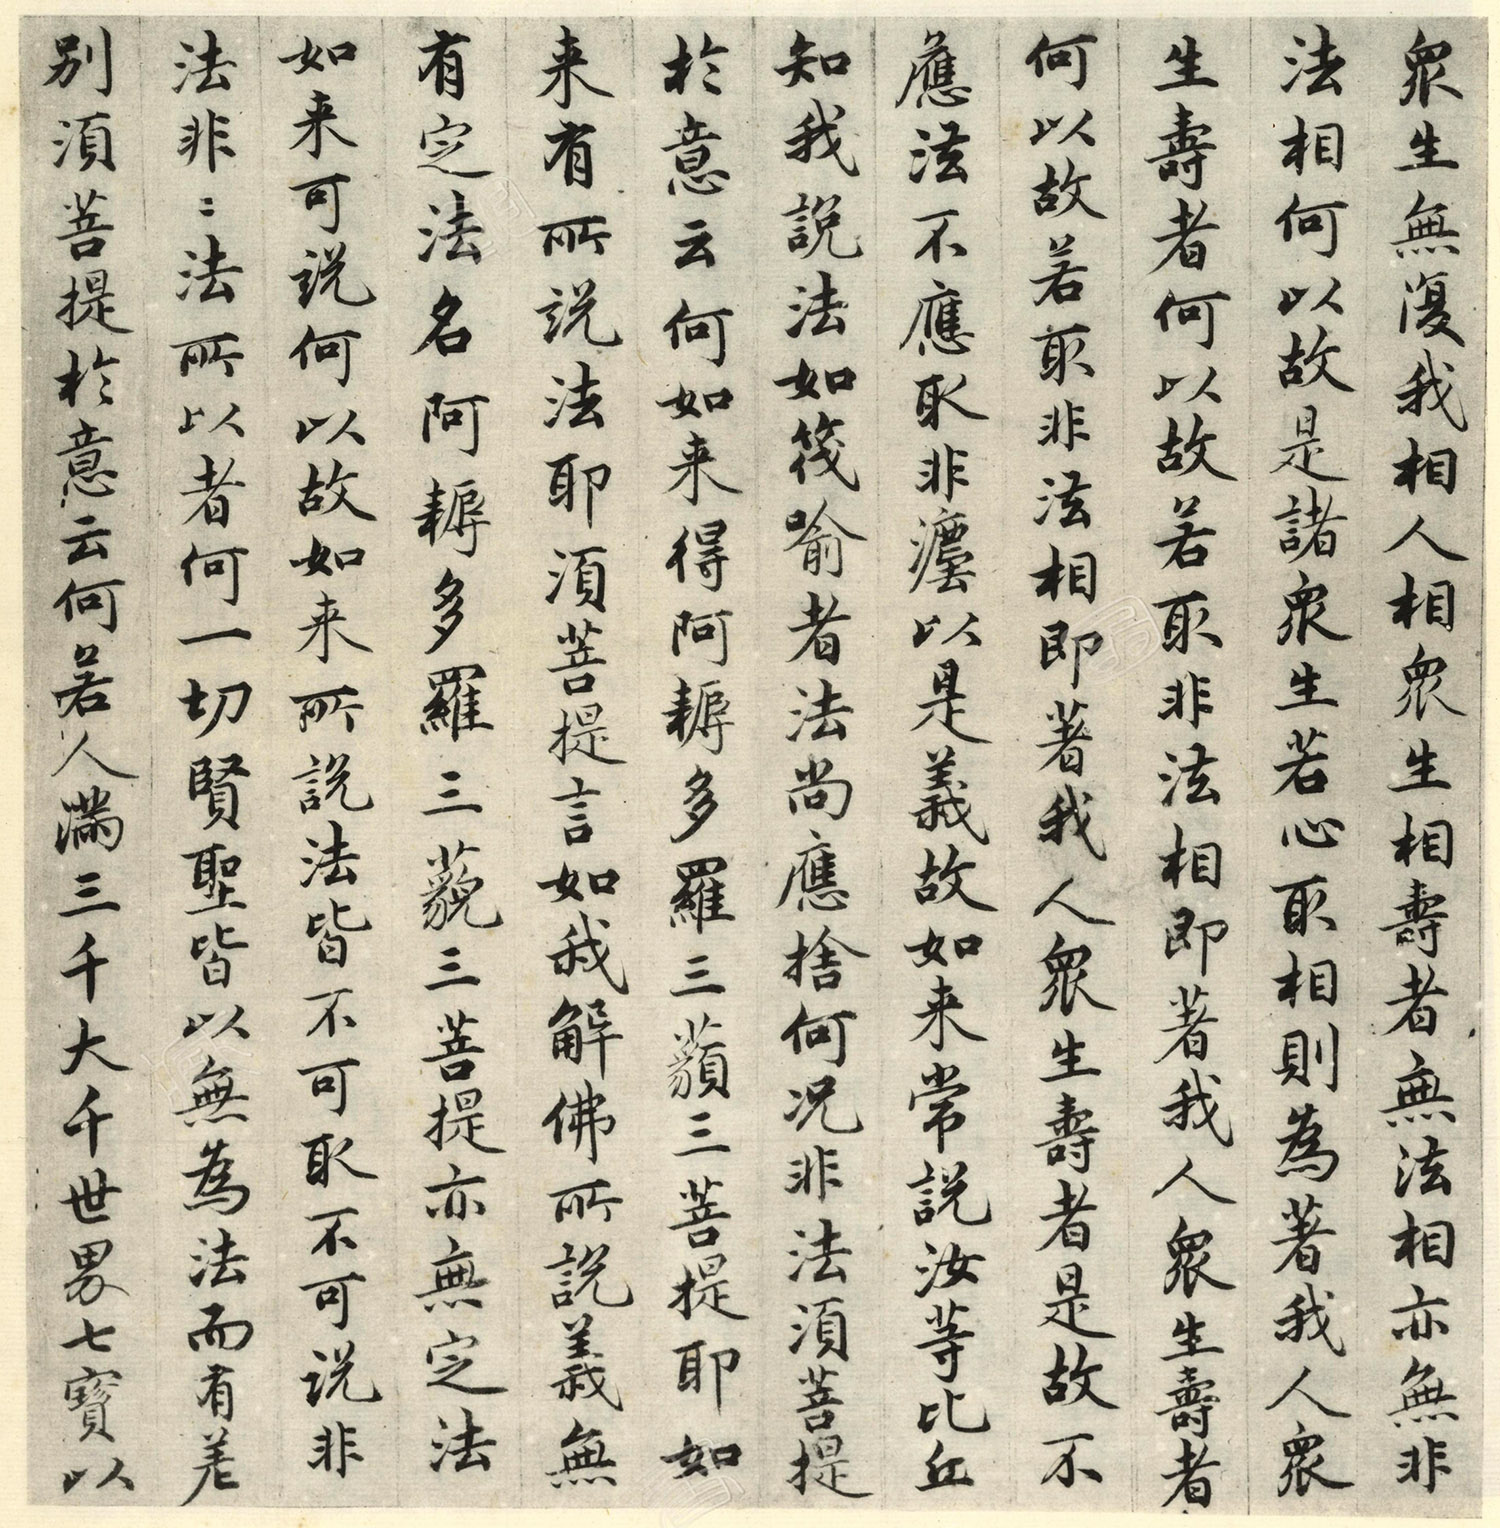 眾生無復我相人相眾生相壽者無法相亦無非
法相何以故是諸眾生若心取相則為著我人眾
生壽者何以故若取非法相即著我人眾生壽者
何以故若取非法相即著我人眾生壽者是故不
應法不應取非法以是義故如来常説汝等比丘
知我說法如筏喻者法尚應捨何况非法須菩提
於意云何如来得阿耨多羅三藐三菩提耶如
来有所說法耶須菩提言如我解佛所說義無
有定法名阿耨多羅三藐三菩提亦無定法
如来可説何以故如来所說法皆不可取不可説非
法非〻法所以者何一切賢聖皆以無為法而有差
別須菩提於意云何若人滿三千大千世界七寶以